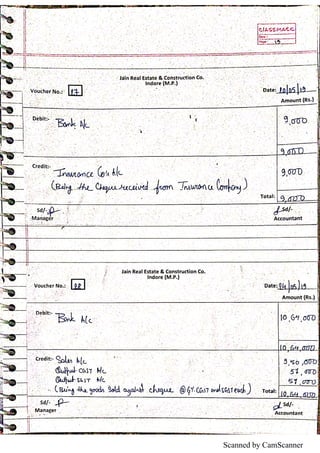 CLASSMATE
Date :
Page : 19
Jain Real Estate & Construction Co.
Indore (M.P.)
Voucher No.: 17
Date: 20/05/19
Amount (Rs.)
Debit:- Bank A/c
9,000
9,000
Credit:- Insurance Co's A/c
9,000
(Being the Cheque received from Insurance Company)
Total: 9,000
Sd/-
Manager
Sd/-
Accountant
Jain Real Estate & Construction Co.
Indore (M.P.)
Voucher No.:
Date: 24/05/19
Amount (Rs.)
Debit:- Bank A/c
10,64,000
10,64,000
Credit:- Sales A/c
9,50,000
Output CGST A/c
57,000
Output SGST A/c
57,000
(Being the goods sold against cheque @ 6% CGST and SGST each)
Total: 10,64,000
Sd/-
Manager
Sd/-
Accountant
Scanned by CamScanner